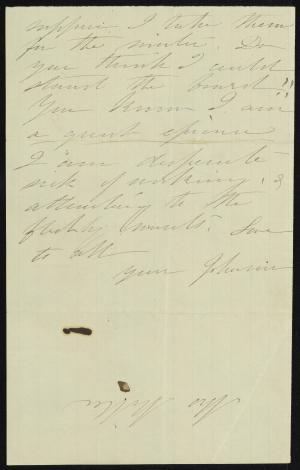 suppose I take them
for the winter. Do
you think I could
stand the board!!
You know I am
a great
I am desperate
sick of working, &
attending to the
fleshly wants. Love
to all
your
Mrs